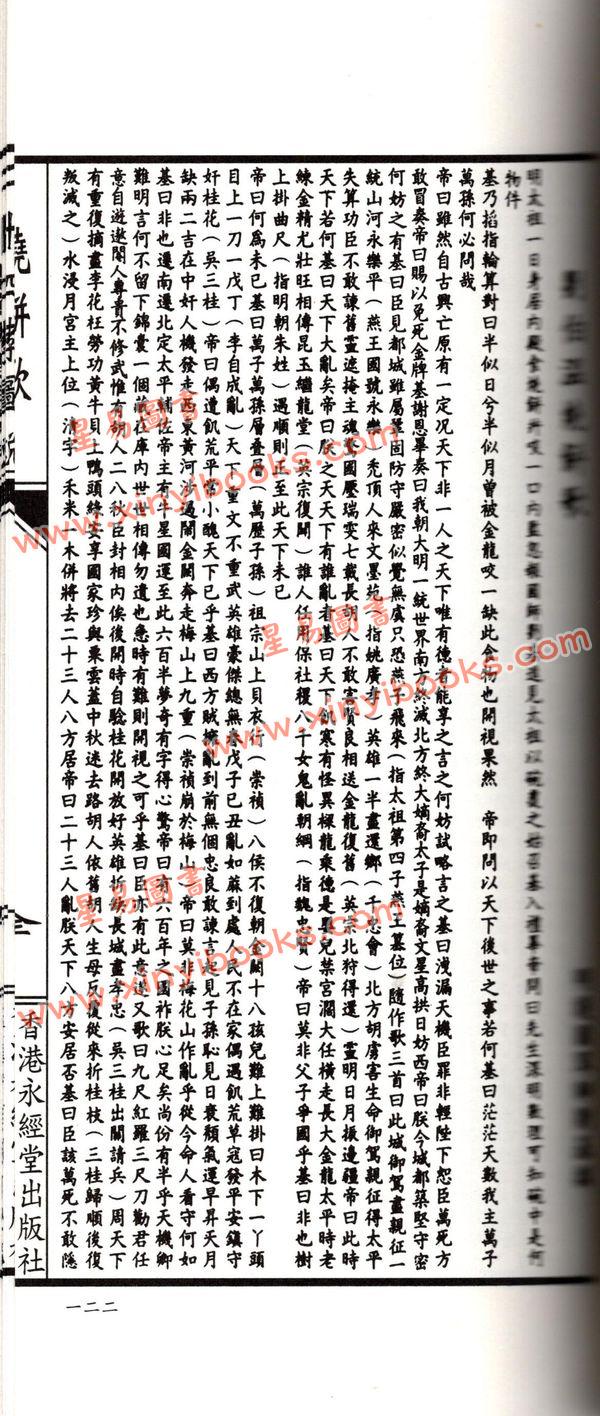 明太祖一日身居內殿食燒餅所咬一口內監忽報國師劉基進見太祖以碗蓋之始召基入禮畢帝問曰先生深明數理可知碗中是何
物件
基乃搯指輪算對曰半似日兮半似月曾被金龍咬一缺此食物也開視果然　帝即問以天下後世之事若何基曰茫茫天數我主萬子
萬孫何必問哉
帝曰雖然自古興亡原有一定况天下非一人之天下唯有德者能享之言之何妨試略言之基曰洩漏天機臣罪非輕陛下恕臣萬死方
敢冒奏帝曰賜以免死金牌基謝恩畢奏曰我朝大明一統世界南方終滅北方終大嫡裔太子是嫡裔文星高拱日妨西帝曰朕今城都築堅守密
何妨之有基曰臣見都城雖屬鞏固防守嚴密似覺無虞只恐燕子飛來（指太祖第四子燕王篡位）隨作歌三首曰此城御駕盡親征一
統山河永樂平（燕王國號永樂）禿頂人來文墨苑（指姚廣孝）英雄一半盡還鄉（千忠會）北方胡虜害生命御駕親征得太平
失算功臣不敢諫舊靈遮掩主魂驚國壓瑞雲七載長胡人不敢害賢良相送金龍復舊（英宗北狩得還）靈明日月振邊疆帝曰此時
天下若何基曰天下大亂矣帝曰朕之天天下有誰亂者基曰天下飢寒有怪異棟龍乘德是嬰兒禁宮濶大任橫走長大金龍太平時老
練金精尤壯旺相傳昆玉繼龍堂（英宗復闢）誰人任用保社稷八千女鬼亂朝綱（指魏忠賢）帝曰莫非父子爭國乎基曰非也樹
上掛曲尺（指明朝朱姓）遇順則止至此天下未已
帝曰何爲未已基曰萬子萬孫層叠層（萬歷子孫）祖宗山上貝衣行（崇禎）八侯不復朝金闕十八孩兒難上難掛曰木下一丫頭
目上一刀一戊丁（李自成亂）天下重文不重武英雄豪傑總無春戊子己丑亂如蔴到處人民不在家偶遇飢荒草寇發平安鎮守
好桂花（吳三桂）帝曰偶遭飢荒平常小醜天下已乎基曰西方賊擾亂到前無個忠良敢諫言起見子孫恥見日衰頽氣運早昇天月
缺兩二吉在中奸人機發走西東黃河涉過鬧金闕奔走梅山上九重（崇禎崩於梅山）帝曰莫非梅花山作亂乎從今命人看守何如
基曰非也遷南遷北定太平輔佐帝主有牛星國運至此六百半夢奇有字得心驚帝曰有六百年之國祚朕心足矣尚份有半乎天機卿
難明言何不留下錦囊一個藏在庫內世世相傳勿遺也急時有難則開視之可乎基曰臣亦有此意遂又歌曰九尺紅羅三尺刀勸君任
意自遊遨閹人專責不修武惟有胡人二八秋臣封相內俟後開時自驗桂花開放好英雄折缺長城盡孝忠（吳三桂出關請兵）周天下
有重復摘盡李花枉勞功黃牛貝上鴨頭綠安享國家珍與粟雲蓋中秋迷去路胡人依舊胡人生母反復從來折桂枝（三桂歸順後復
叛滅之）水浸月宮主上位（清字）禾米一木併將去二十三人八方居帝曰二十三人亂朕天下八方安居否基曰臣該萬死不敢隱
燒餅歌
全
香港永經堂出版社
一二二
星易圖書
www.xinyibooks.com
星易圖書
www.xinyibooks.com
星易圖書
www.xinyibooks.com